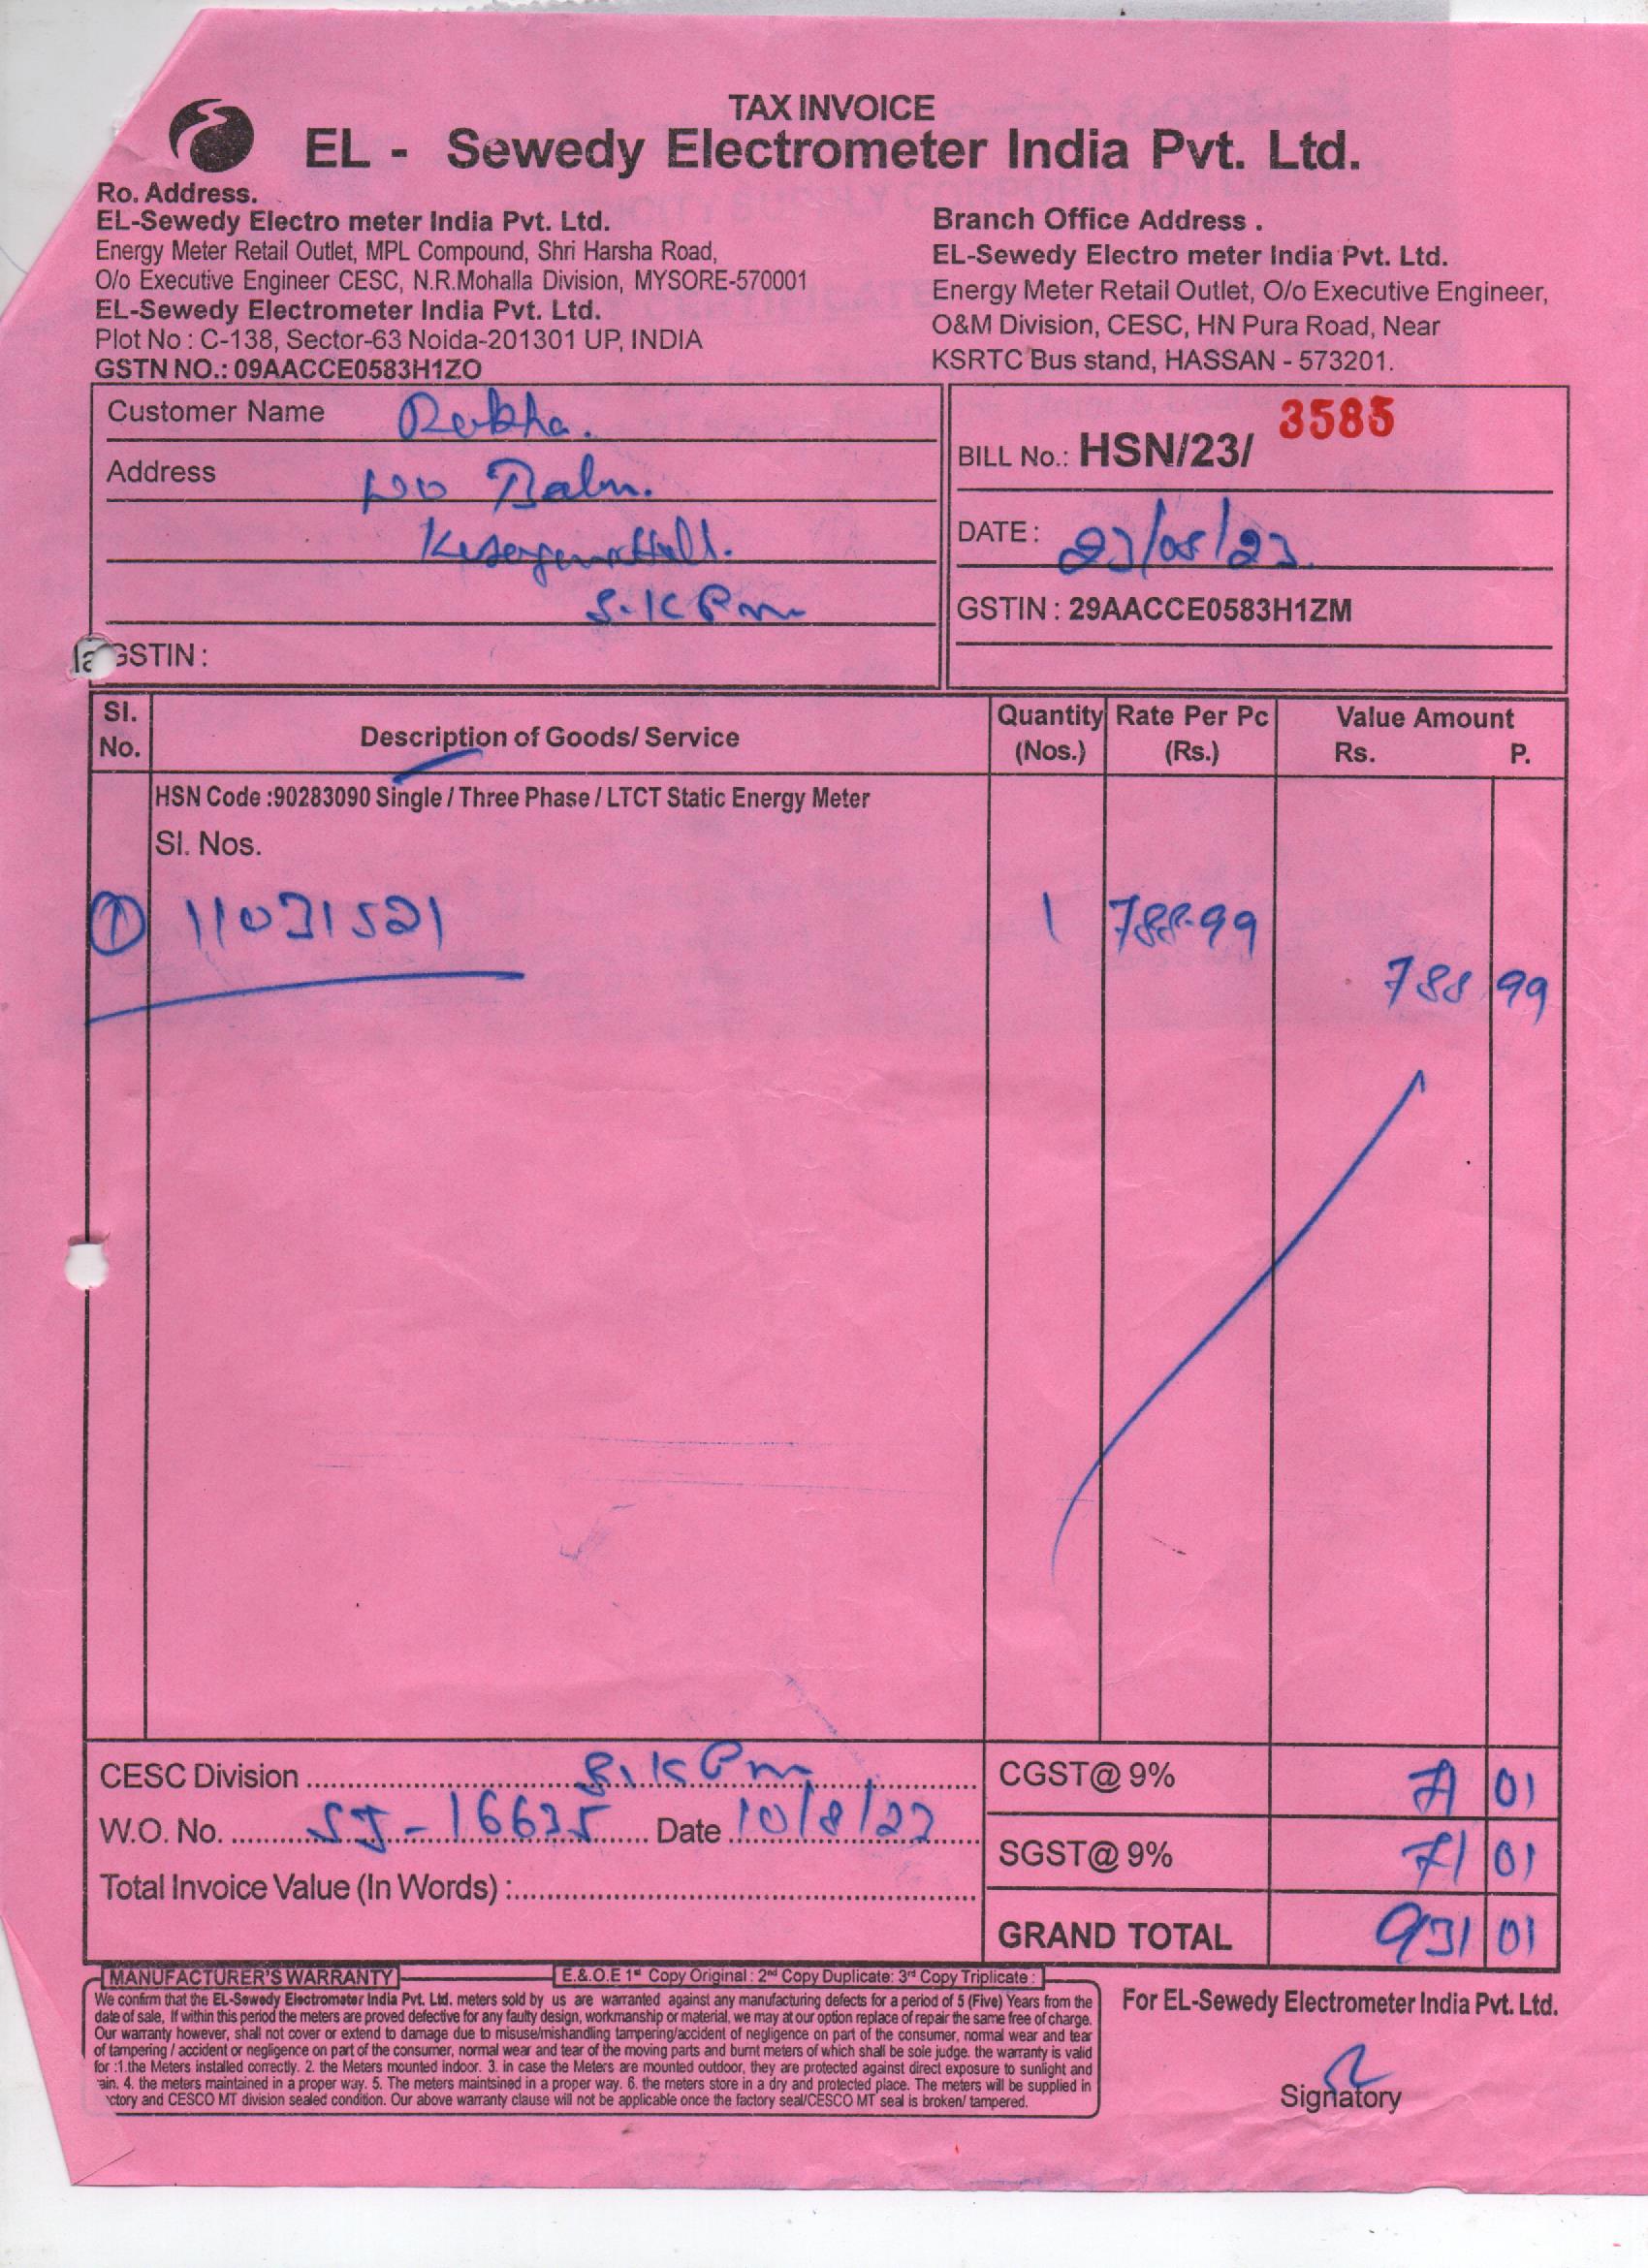 TAX INVOICE
EL - Sewedy Electrometer India Pvt. Ltd.
Ro. Address.
EL-Sewedy Electro meter India Pvt. Ltd.
Energy Meter Retail Outlet, MPL Compound, Shri Harsha Road,
O/o Executive Engineer CESC, N.R.Mohalla Division, MYSORE-570001
EL-Sewedy Electrometer India Pvt. Ltd.
Plot No : C-138, Sector-63 Noida-201301 UP, INDIA
GSTN NO.: 09AACCE0583H1ZO
Branch Office Address .
EL-Sewedy Electro meter India Pvt. Ltd.
Energy Meter Retail Outlet, O/o Executive Engineer,
O&M Division, CESC, HN Pura Road, Near
KSRTC Bus stand, HASSAN - 573201.
Customer Name Rekha.
Address
S.K Pm
GSTIN :
BILL No.: HSN/23/ 3585
DATE : 23/08/23
GSTIN : 29AACCE0583H1ZM
Sl. No. Description of Goods/ Service Quantity (Nos.) Rate Per Pc (Rs.) Value Amount Rs. P.
HSN Code :90283090 Single / Three Phase / LTCT Static Energy Meter
Sl. Nos.
1 11031521 1 788-99
788 99
CESC Division S.K Pm
W.O. No. SJ-16635 Date 10/8/23
Total Invoice Value (In Words) :
CGST@ 9% 71 01
SGST@ 9% 71 01
GRAND TOTAL 931 01
MANUFACTURER'S WARRANTY E.&.O.E 1st Copy Original : 2nd Copy Duplicate: 3rd Copy Triplicate :
We confirm that the EL-Sewedy Electrometer India Pvt. Ltd. meters sold by us are warranted against any manufacturing defects for a period of 5 (Five) Years from the
date of sale, If within this period the meters are proved defective for any faulty design, workmanship or material, we may at our option replace of repair the same free of charge.
Our warranty however, shall not cover or extend to damage due to misuse/mishandling tampering/accident of negligence on part of the consumer, normal wear and tear
of tampering / accident or negligence on part of the consumer, normal wear and tear of the moving parts and burnt meters of which shall be sole judge. the warranty is valid
for :1.the Meters installed correctly. 2. the Meters mounted indoor. 3. in case the Meters are mounted outdoor, they are protected against direct exposure to sunlight and
ain. 4. the meters maintained in a proper way. 5. The meters maintsined in a proper way. 6. the meters store in a dry and protected place. The meters will be supplied in
ctory and CESCO MT division sealed condition. Our above warranty clause will not be applicable once the factory seal/CESCO MT seal is broken/ tampered.
For EL-Sewedy Electrometer India Pvt. Ltd.
Signatory